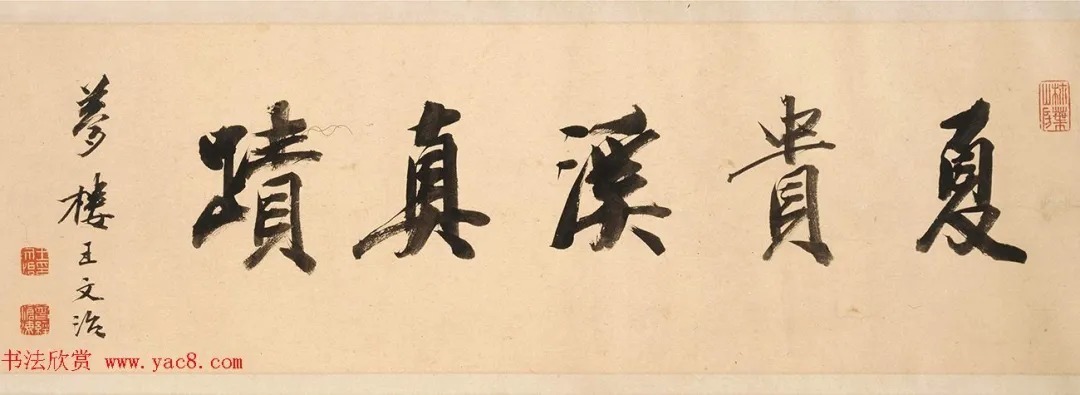 夏貴溪真蹟
夢樓王文治
书法欣赏 www.yac8.com